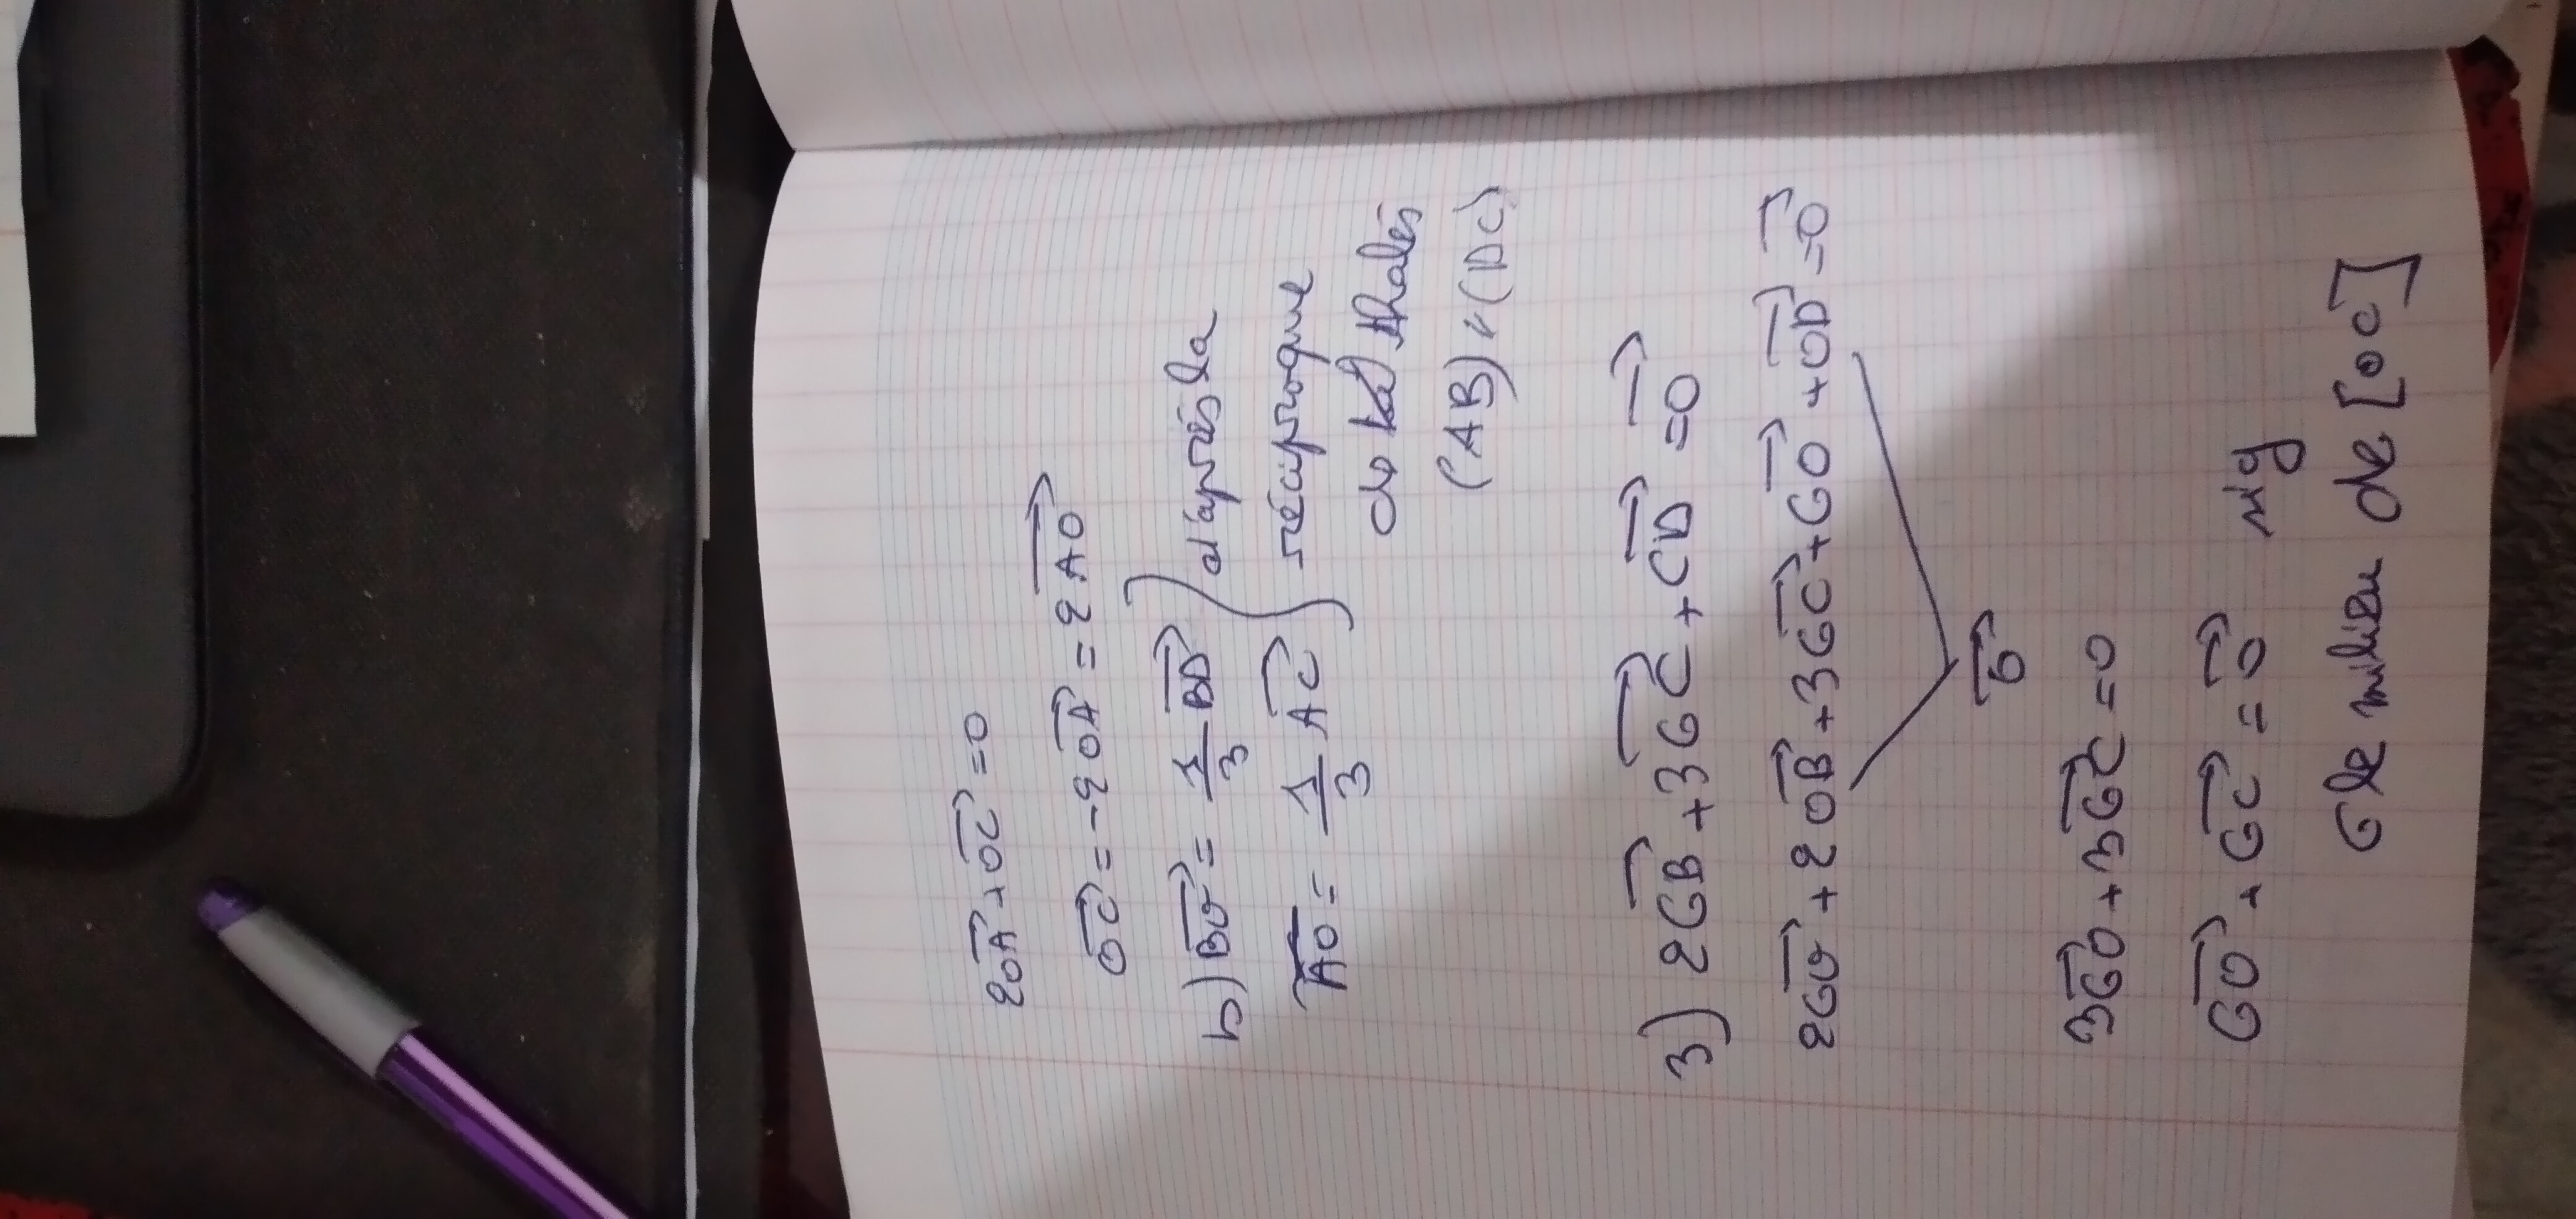 2OA + OC = 0
OC = -2OA = 2AO
b) BO = 1/3 BD } d'aprés la
AO = 1/3 AC } réciproque
de thalés
(AB) // (DC)
3) 2GB + 3GC + CD = 0
2GO + 2OB + 3GC + GO + OD = 0
0
3GO + 3GC = 0
GO + GC = 0
G le milieu de [OC]